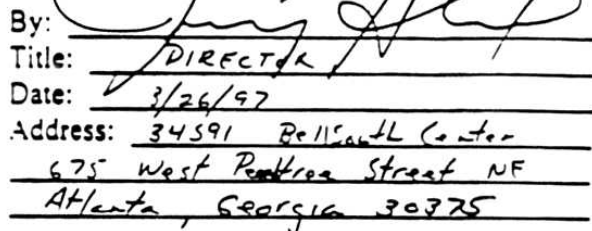 By:
Title: DIRECTOR
Date: 3/26/97
Address: 34S91 BellSouth Center
675 West Peachtree Street NE
Atlanta, Georgia 30375